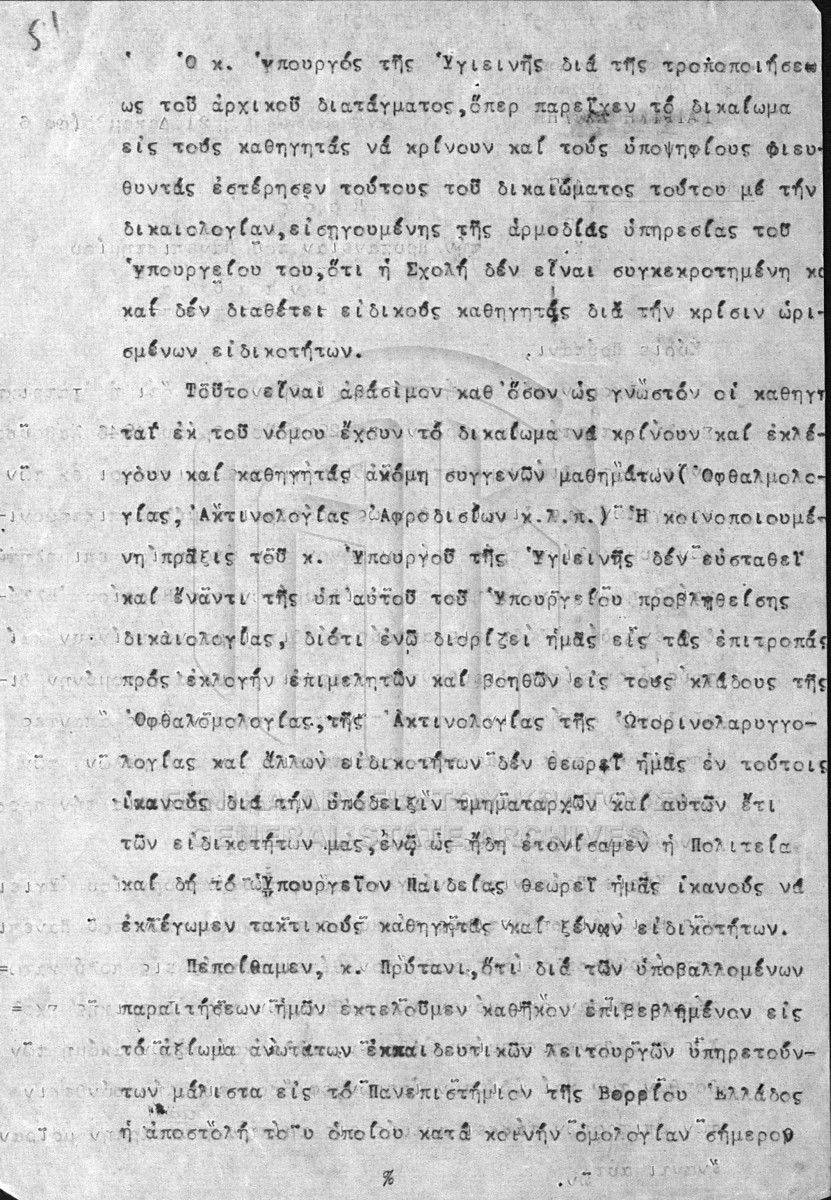 51
Ὁ κ. Ὑπουργός τῆς Ὑγιεινῆς διά τῆς τροποποιήσε=
ως τοῦ ἀρχικοῦ διατάγματος, ὅπερ παρεῖχεν τό δικαίωμα
εἰς τούς καθηγητάς νά κρίνουν καί τούς ὑποψηφίους διευ-
θυντάς ἐστέρησεν τούτους τοῦ δικαιώματος τούτου μέ τήν
δικαιολογίαν, εἰσηγουμένης τῆς ἁρμοδίας ὑπηρεσίας τοῦ
Ὑπουργείου του, ὅτι ἡ Σχολή δέν εἶναι συγκεκροτημένη κα
καί δέν διαθέτει εἰδικούς καθηγητάς διά τήν κρίσιν ὡρι-
σμένων εἰδικοτήτων.
Τοῦτο εἶναι ἀβάσιμον καθ' ὅσον ὡς γνωστόν οἱ καθηγη
ταί ἐκ τοῦ νόμου ἔχουν τό δικαίωμα νά κρίνουν καί ἐκλέ-
γουν καί καθηγητάς ἀκόμη συγγενῶν μαθημάτων (Ὀφθαλμολο-
γίας, Ἀκτινολογίας Ἀφροδισίων κ.λ.π.) Ἡ κοινοποιουμέ-
νη πρᾶξις τοῦ κ. Ὑπουργοῦ τῆς Ὑγιεινῆς δέν εὐσταθεῖ
καί ἔναντι τῆς ὑπ' αὐτοῦ τοῦ Ὑπουργείου προβληθείσης
δικαιολογίας, διότι ἐνῶ διορίζει ἡμᾶς εἰς τάς ἐπιτροπάς
πρός ἐκλογήν ἐπιμελητῶν καί βοηθῶν εἰς τούς κλάδους τῆς
Ὀφθαλομολογίας, τῆς Ἀκτινολογίας τῆς Ὠτορινολαρυγγο-
λογίας καί ἄλλων εἰδικοτήτων δέν θεωρεῖ ἡμᾶς ἐν τούτοις
ἱκανούς διά τήν ὑπόδειξιν τμηματαρχῶν καί αὐτῶν ἔτι
τῶν εἰδικοτήτων μας, ἐνῶ ὡς ἤδη ἐτονίσαμεν ἡ Πολιτεία
καί δή τό Ὑπουργεῖον Παιδείας θεωρεῖ ἡμᾶς ἱκανούς νά
ἐκλέγωμεν τακτικούς καθηγητάς καί ξένων εἰδικοτήτων.
Πεποίθαμεν, κ. Πρύτανι, ὅτι διά τῶν ὑποβαλλομένων
παραιτήσεων ἡμῶν ἐκτελοῦμεν καθῆκον ἐπιβεβλημένον εἰς
τό ἀξίωμα ἀνωτάτων ἐκπαιδευτικῶν λειτουργῶν ὑπηρετούν-
των μάλιστα εἰς τό Πανεπιστήμιον τῆς Βορείου Ἑλλάδος
ἡ ἀποστολή τοῦ ὁποίου κατά κοινήν ὁμολογίαν σήμερον
%
GENERAL STATE ARCHIVES